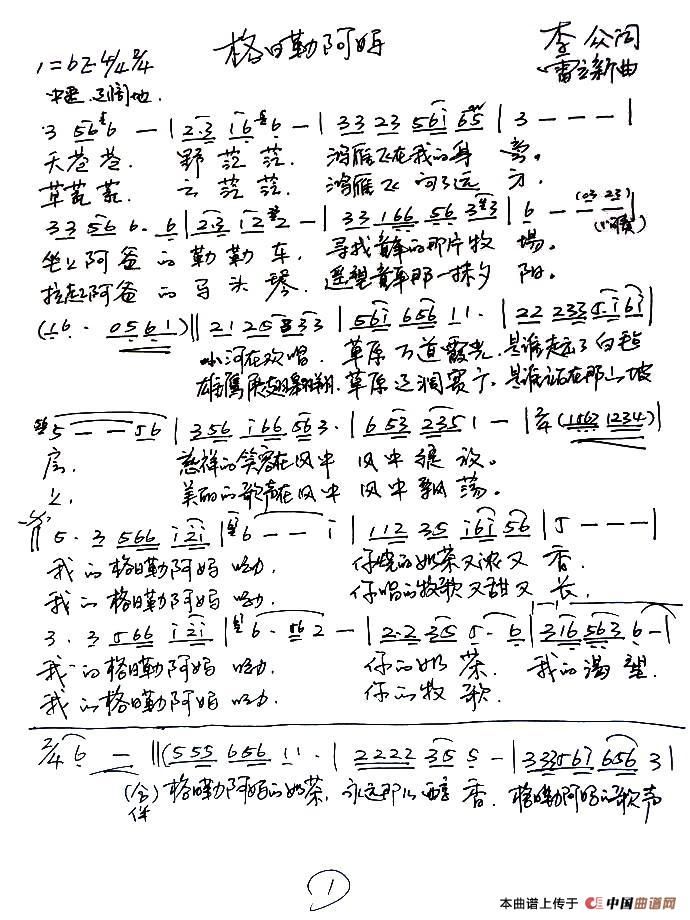 格日勒阿妈
李众 词
雷立新曲
1=bE 4/4 2/4
中速 辽阔地.
3 56 6 — | 2·3 16 6 — | 33 23 561 65 | 3 — — — |
天苍苍. 野茫茫. 鸿雁飞在我的身旁。
草荒荒. 云茫茫. 鸿雁飞向了远方.
33 56 6· 6 | 2·3 12 2 — | 33 166 56 33 | 6 — — (03 23) |
坐上阿爸的勒勒车. 寻找青草的那片牧場。
拉起阿爸的马头琴. 遥望青草那一抹夕阳。
(16· 0561) || 21 25 3 33 | 561 656 11· | 22 233 5·163 |
小河在欢唱. 草原万道霞光. 是谁走出了白毡
雄鹰展翅翱翔. 草原辽阔宽广. 是谁站在那山坡
5 — — 56 | 356 166 563· | 6 53 235 1 — | 2/4 (1563 1234) |
房. 慈祥的笑容在风中 风中绽放。
上. 美丽的歌声在风中 风中飘荡。
5· 3 566 121 | 6 — — 1 | 112 35 161 56 | 5 — — — |
我的格日勒阿妈呦. 你烧的奶茶又浓又香.
我的格日勒阿妈呦. 你唱的牧歌又甜又长.
3· 3 566 121 | 6· 56 2 — | 2·2 35 5· 6 | 316 563 6 — |
我的格日勒阿妈呦. 你的奶茶. 我的渴望.
我的格日勒阿妈呦. 你的牧歌.
2/4 6 — || (555 656 11· | 2222 35 5 — | 333567 656 3 |
(合) 格日勒阿妈的奶茶. 永远那么醇香. 格日勒阿妈的歌声
伴
1
本曲谱上传于 中国曲谱网